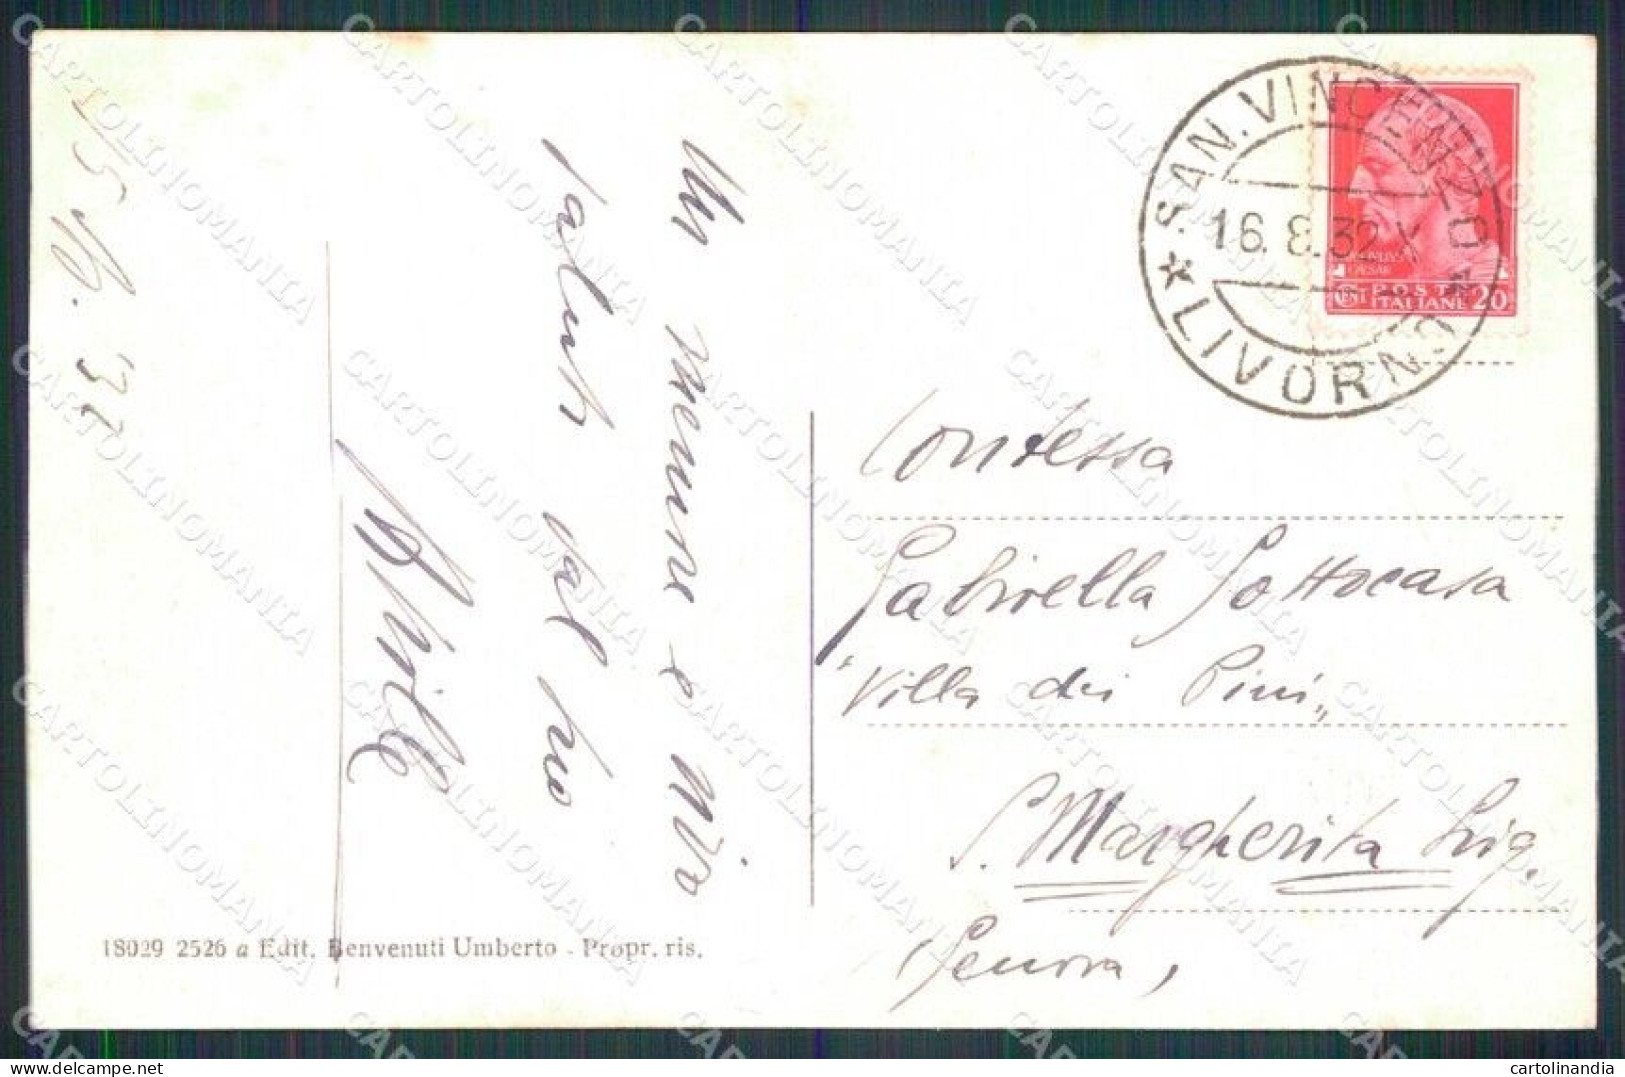 15/8. 32
Un memore e vivo
saluto dal tuo
Achille
SAN. VINCENZO
16. 8. 32 X
* LIVORNO *
CENT POSTE ITALIANE 20
CAESAR
Contessa
Gabriella Sottocasa
"Villa dei Pini"
S. Margherita Lig.
(Genova)
18029 2526 a Edit. Benvenuti Umberto - Propr. ris.
CARTOLINOMANIA
cartolinandia